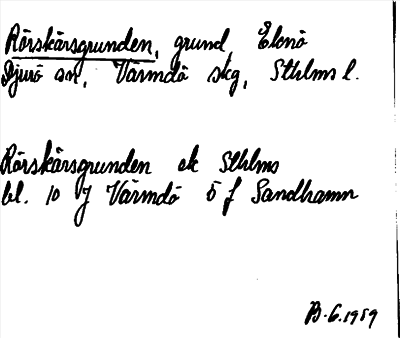 Rörskärsgrunden, grund, Elonö
Djurö sn, Värmdö skg, Sthlms l.
Rörskärsgrunden ek Sthlms
bl. 10 J Värmdö ö f Sandhamn
B. 6. 1959